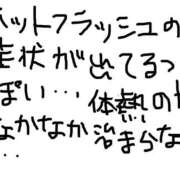 ットフラッシュの
症状がでてるっ
ぽい… 体熱の
なかなか治まらな
…